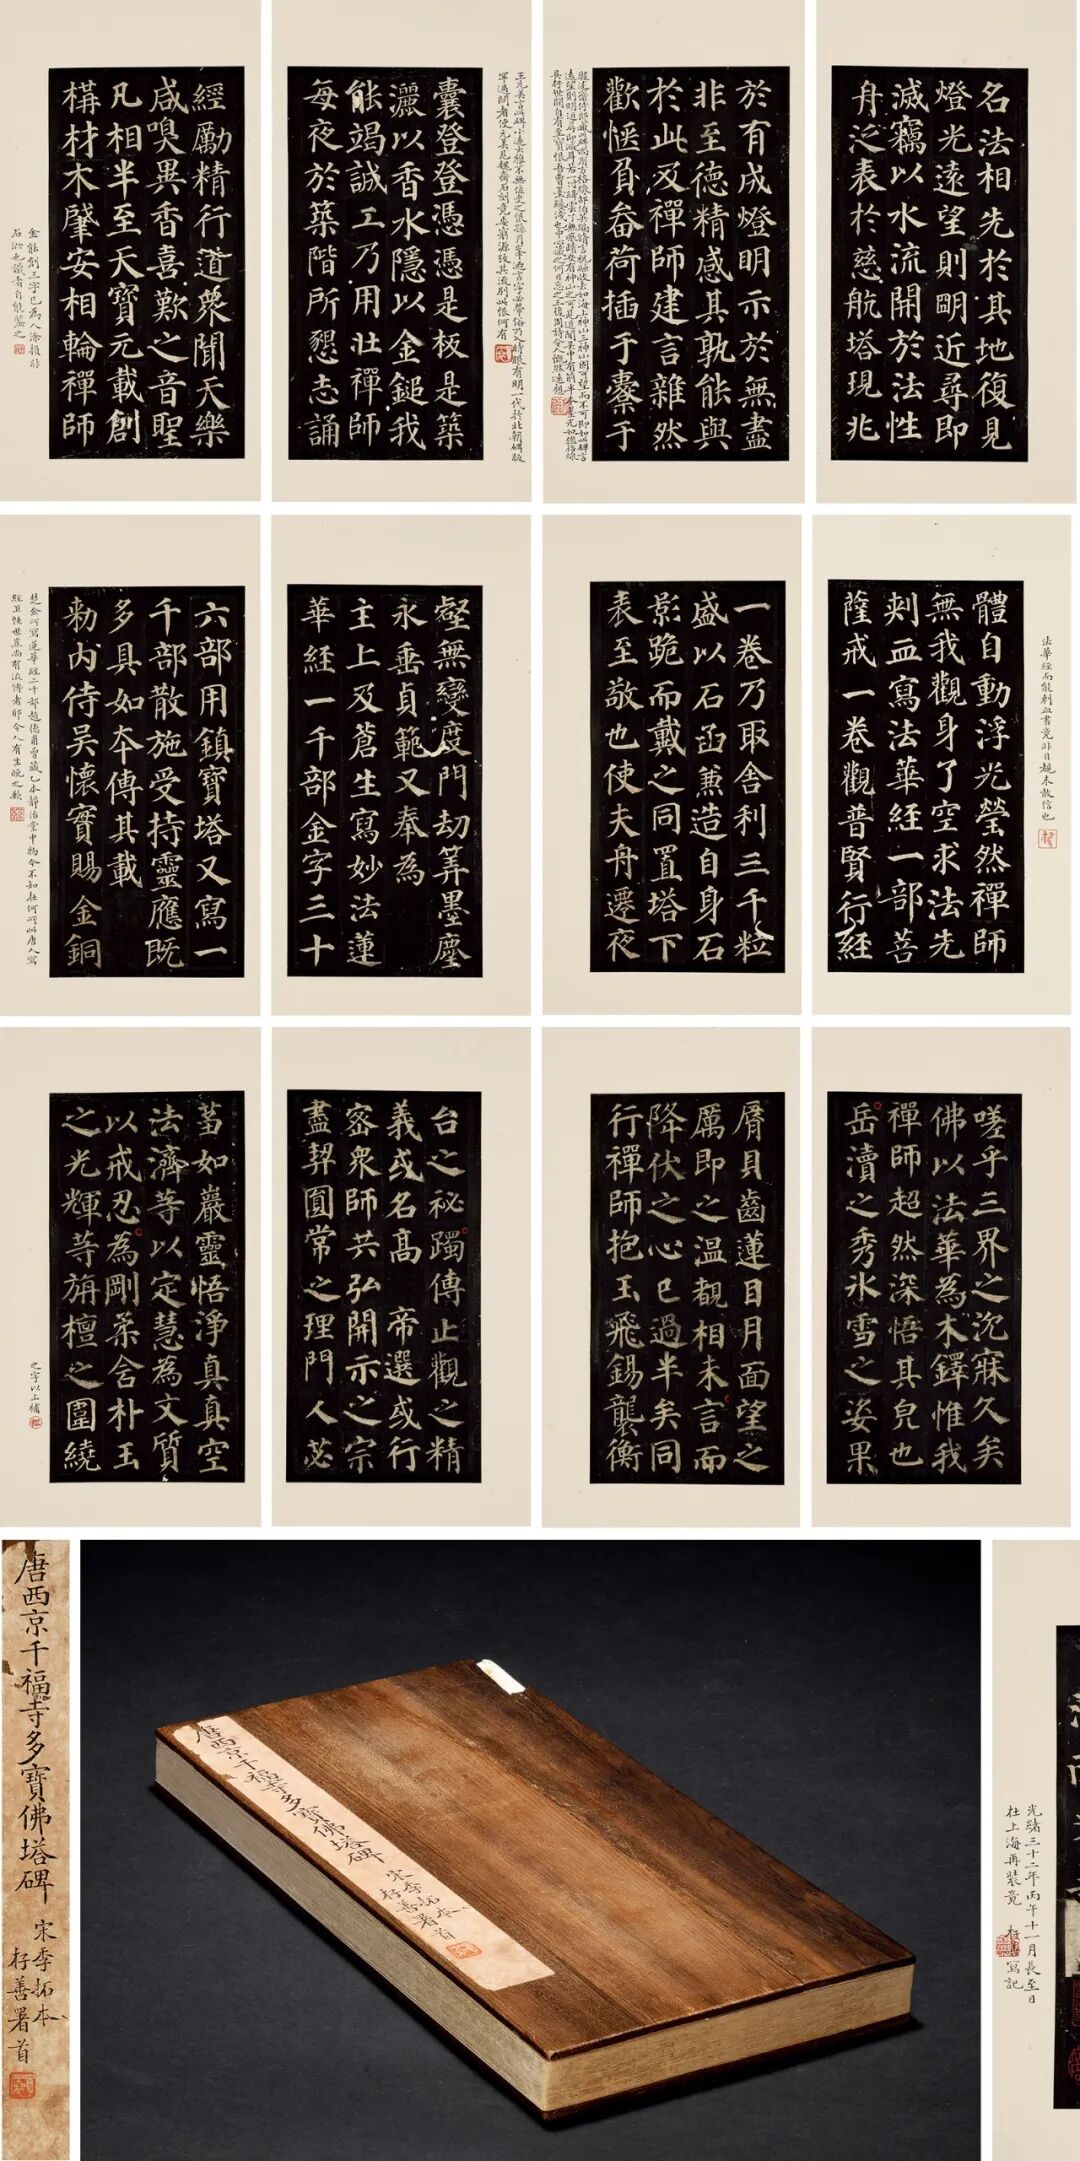 名法相先於其地復見
燈光遠望則朙近尋即
滅竊以水流開於法性
舟泛表於慈航塔現兆
於有成燈明示於無盡
非至德精感其孰能與
於此及禪師建言雜然
歡愜負畚荷插于橐于
囊登登憑憑是板是築
灑以香水隱以金鎚我
能竭誠工乃用壯禪師
每夜於築階所懇志誦
經勵精行道衆聞天樂
咸嗅異香喜歎之音聖
凡相半至天寶元載創
構材木肇安相輪禪師
金能創三字已為人塗損非
石泐也識者自能鑒之
法華經而能刺血書竟非目覩未敢信也
體自動浮光瑩然禪師
無我觀身了空求法先
刺血寫法華經一部菩
薩戒一卷觀普賢行經
一卷乃取舍利三千粒
盛以石函兼造自身石
影跪而戴之同置塔下
表至敬也使夫舟遷夜
壑無變度門劫筭墨塵
永垂貞範又奉為
主上及蒼生寫妙法蓮
華經一千部金字三十
六部用鎮寶塔又寫一
千部散施受持靈應既
多具如本傳其載
勑內侍吳懷實賜金銅
嗟乎三界之沉寐久矣
佛以法華為木鐸惟我
禪師超然深悟其皃也
岳瀆之秀冰雪之姿果
脣貝齒蓮目月面望之
厲即之溫覩相未言而
降伏之心已過半矣同
行禪師抱玉飛錫襲衡
台之秘躅傳止觀之精
義或名高 帝選或行
密衆師共弘開示之宗
盡契圓常之理門人苾
芻如巖靈悟淨真真空
法濟等以定慧為文質
以戒忍為剛柔含朴玉
之光輝等旃檀之圍繞
之字以上補
唐西京千福寺多寶佛塔碑
宋季拓本
存善署首
唐西京千福寺多寶佛塔碑
宋季拓本
存善署首
光緒三十二年丙午十一月長至日
在上海再裝竟
寫記